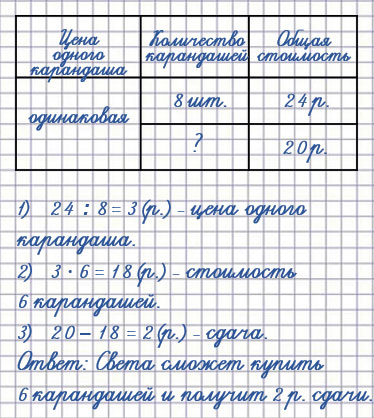 Цена одного карандаша
Количество карандашей
Общая стоимость
одинаковая
8 шт.
24 р.
?
20 р.
1) 24 : 8 = 3 (р.) – цена одного
карандаша.
2) 3 · 6 = 18 (р.) – стоимость
6 карандашей.
3) 20 – 18 = 2 (р.) – сдача.
Ответ: Света сможет купить
6 карандашей и получит 2 р. сдачи.